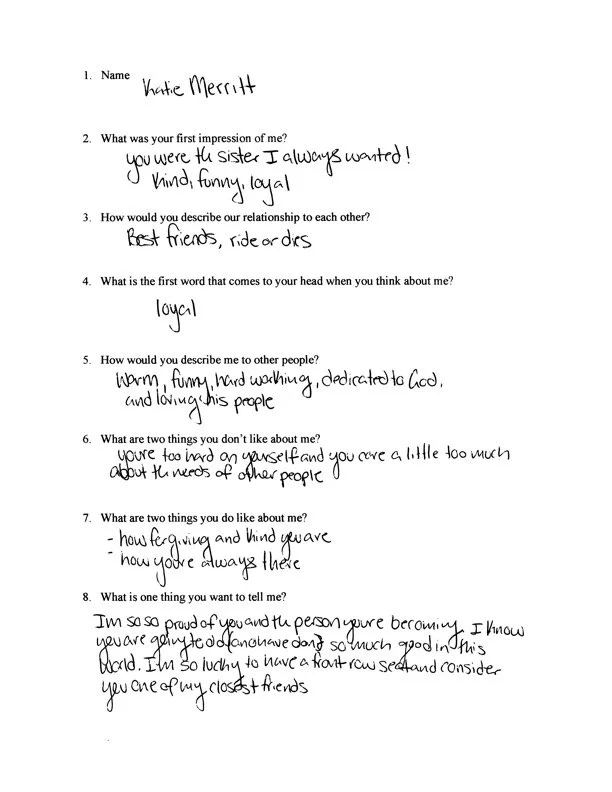 1. Name
Katie Merritt
2. What was your first impression of me?
you were th sister I always wanted!
kind, funny, loyal
3. How would you describe our relationship to each other?
Best friends, ride or dies
4. What is the first word that comes to your head when you think about me?
loyal
5. How would you describe me to other people?
Warm, funny, hard working, dedicated to God,
and loving his people
6. What are two things you don't like about me?
youre too hard on yourself and you care a little too much
about th needs of other people
7. What are two things you do like about me?
- how forgiving and kind you are
- how you're always there
8. What is one thing you want to tell me?
I'm so so proud of you and th person youre becoming. I know
you are going to do and have done so much good in this
world. I'm so lucky to have a front row seat and consider
you one of my closest friends